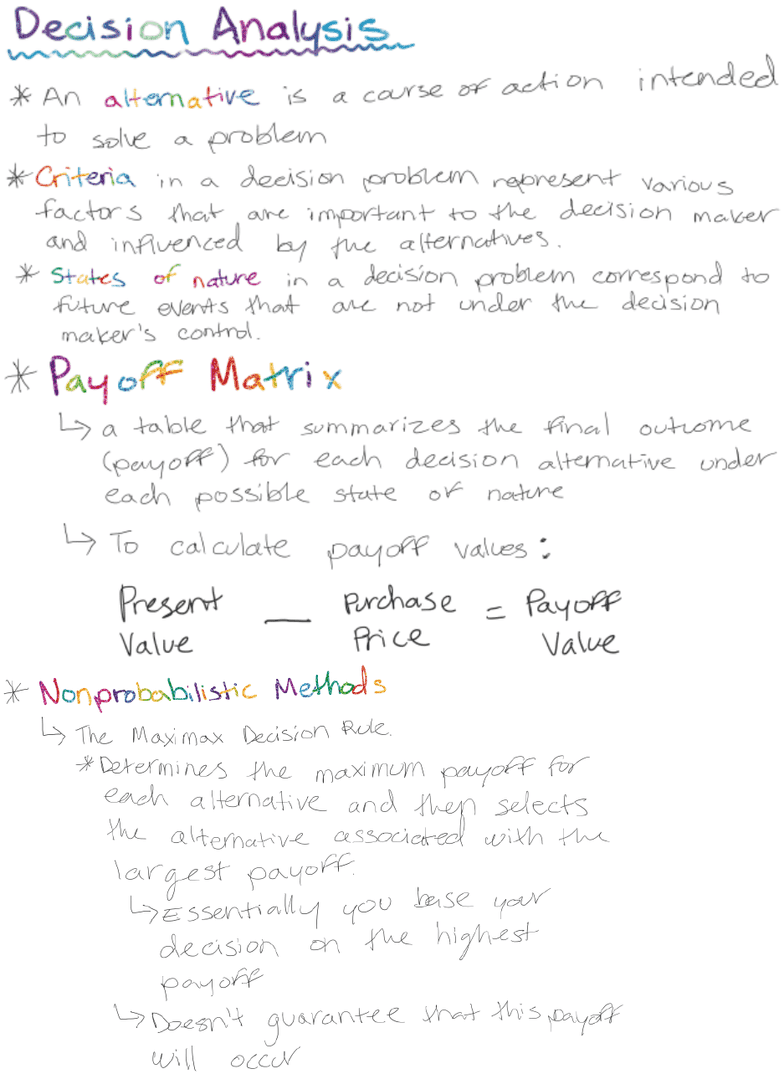 Decision Analysis
* An alternative is a course of action intended
to solve a problem
* Criteria in a decision problem represent various
factors that are important to the decision maker
and influenced by the alternatives.
* States of nature in a decision problem correspond to
future events that are not under the decision
maker's control.
* Payoff Matrix
↳ a table that summarizes the final outcome
(payoff) for each decision alternative under
each possible state of nature
↳ To calculate payoff values:
Present Value — Purchase Price = Payoff Value
* Nonprobabilistic Methods
↳ The Maximax Decision Rule.
* Determines the maximum payoff for
each alternative and then selects
the alternative associated with the
largest payoff.
↳ Essentially you base your
decision on the highest
payoff
↳ Doesn't guarantee that this payoff
will occur